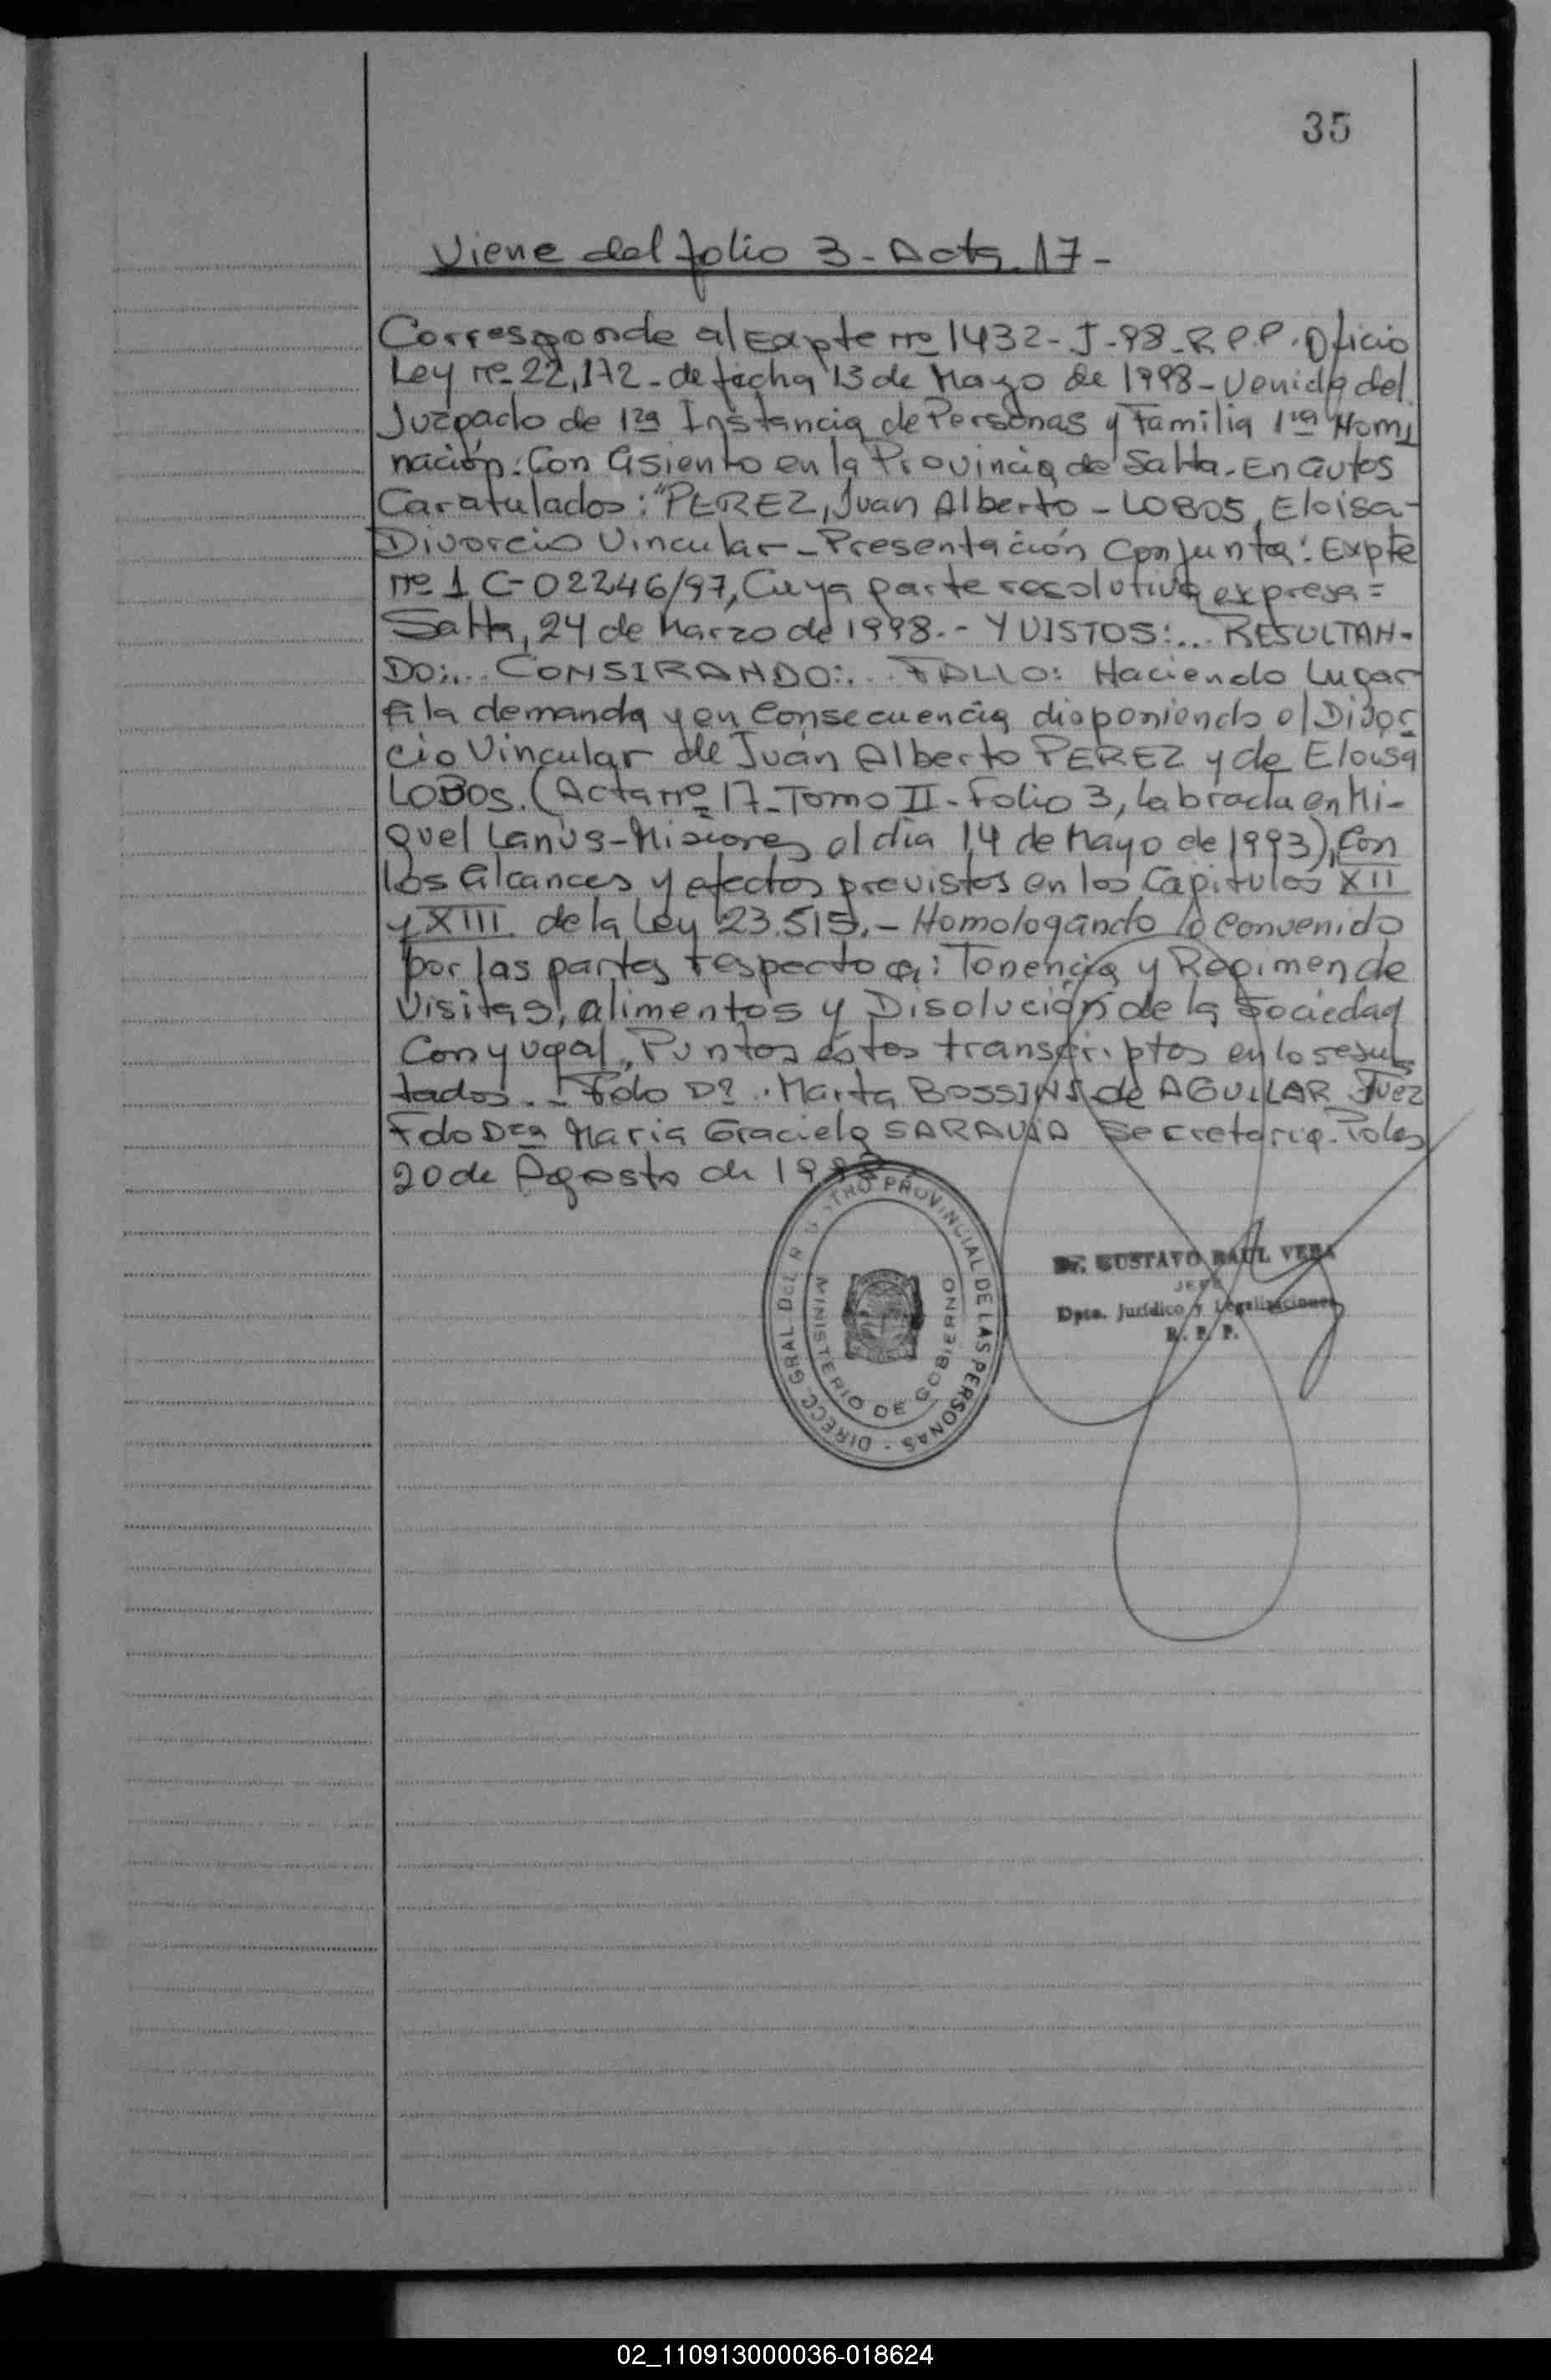 35
Viene del folio 3 - Acta 17 -
Corresponde al Expte nº 1432 - J - 98 - R.P.P. Oficio
Ley nº 22,172 - de fecha 13 de Mayo de 1998 - venida del
Juzgado de 1ra Instancia de Personas y Familia 1ra Nomi
nación. Con asiento en la Provincia de Salta. En autos
Caratulados: "PEREZ, Juan Alberto - LOBOS, Eloisa -
Divorcio Vincular - Presentación Conjunta". Expte
nº 1 C-02246/97, Cuya parte resolutiva expresa =
Salta, 24 de Marzo de 1998. - Y VISTOS:... RESULTAN-
DO:... CONSIRANDO:... FALLO: Haciendo Lugar
a la demanda y en Consecuencia disponiendo el Divor
cio Vincular de Juan Alberto PEREZ y de Eloisa
LOBOS. (Acta nº 17 - Tomo II - Folio 3, labrada en Mi-
guel Lanús - Misiones el día 14 de Mayo de 1993), Con
los alcances y efectos previstos en los Capitulos XII
y XIII de la Ley 23.515. - Homologando lo convenido
por las partes respecto a: Tenencia y Regimen de
Visitas, alimentos y Disolución de la Sociedad
Conyugal, Puntos éstos transcriptos en lo resul
tados. - Fdo Dª. Marta BOSSINI de AGUILAR Juez
Fdo Dra Maria Graciela SARAVIA Secretaria. Pdas
20 de Agosto de 1998
DIRECC. GRAL. DEL REGISTRO PROVINCIAL DE LAS PERSONAS -
MINISTERIO DE GOBIERNO
Dr. GUSTAVO RAUL VERA
JEFE
Dpto. Jurídico y Legalizaciones
R. P. P.
02_110913000036-018624